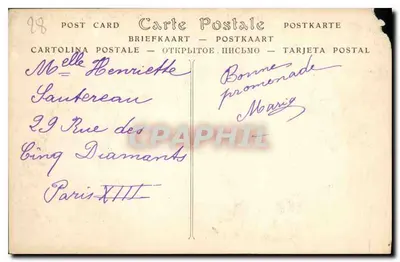 28
POST CARD Carte Postale POSTKARTE
BRIEFKAART — POSTKAART
CARTOLINA POSTALE — ОТКРЫТОЕ ПИСЬМО — TARJETA POSTAL
Melle Henriette
Sautereau
29 Rue des
Cinq Diamants
Paris XIII
Bonnes
promenade
Maria
CPAPHIL